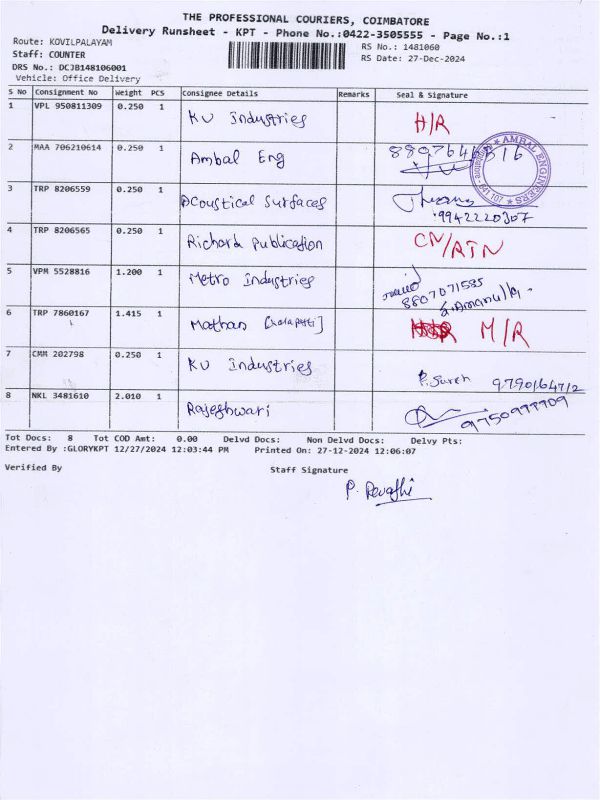 THE PROFESSIONAL COURIERS, COIMBATORE
Delivery Runsheet - KPT - Phone No.:0422-3505555 - Page No.:1
Route: KOVILPALAYAM
RS No.: 1481060
Staff: COUNTER
RS Date: 27-Dec-2024
DRS No.: DCJB148106001
Vehicle: Office Delivery
S No Consignment No Weight PCS Consignee Details Remarks Seal & Signature
1 VPL 950811309 0.250 1 KV Industries H/R
2 MAA 706210614 0.250 1 Ambal Eng
AMBAL ENGINEERS
641 107
3 TRP 8206559 0.250 1 Acoustical Surfaces
9942220307
4 TRP 8206565 0.250 1 Richard Publication CN/RTN
5 VPM 5528816 1.200 1 Metro Industries
8807071585
6 TRP 7860167 1.415 1 Mathan M/R
7 CMM 202798 0.250 1 KV Industries P. Suresh 9790164712
8 NKL 3481610 2.010 1 Rajeshwari
Tot Docs: 8 Tot COD Amt: 0.00 Delvd Docs: Non Delvd Docs: Delvy Pts:
Entered By :GLORYKPT 12/27/2024 12:03:44 PM Printed On: 27-12-2024 12:06:07
Verified By Staff Signature